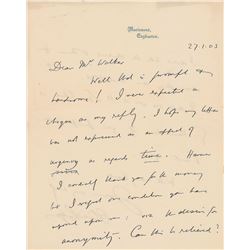 Mariemont,
Edgbaston.
27.1.03
Dear Mr Walker
Well that is prompt &
handsome! I never expected a
cheque as my reply. I hope my letter
was not expressed as an appeal of
urgency as regards time. 
I cordially thank you for the money
& I regard one condition you have
urged upon me; viz the desire for
anonymity. Can this be relaxed?